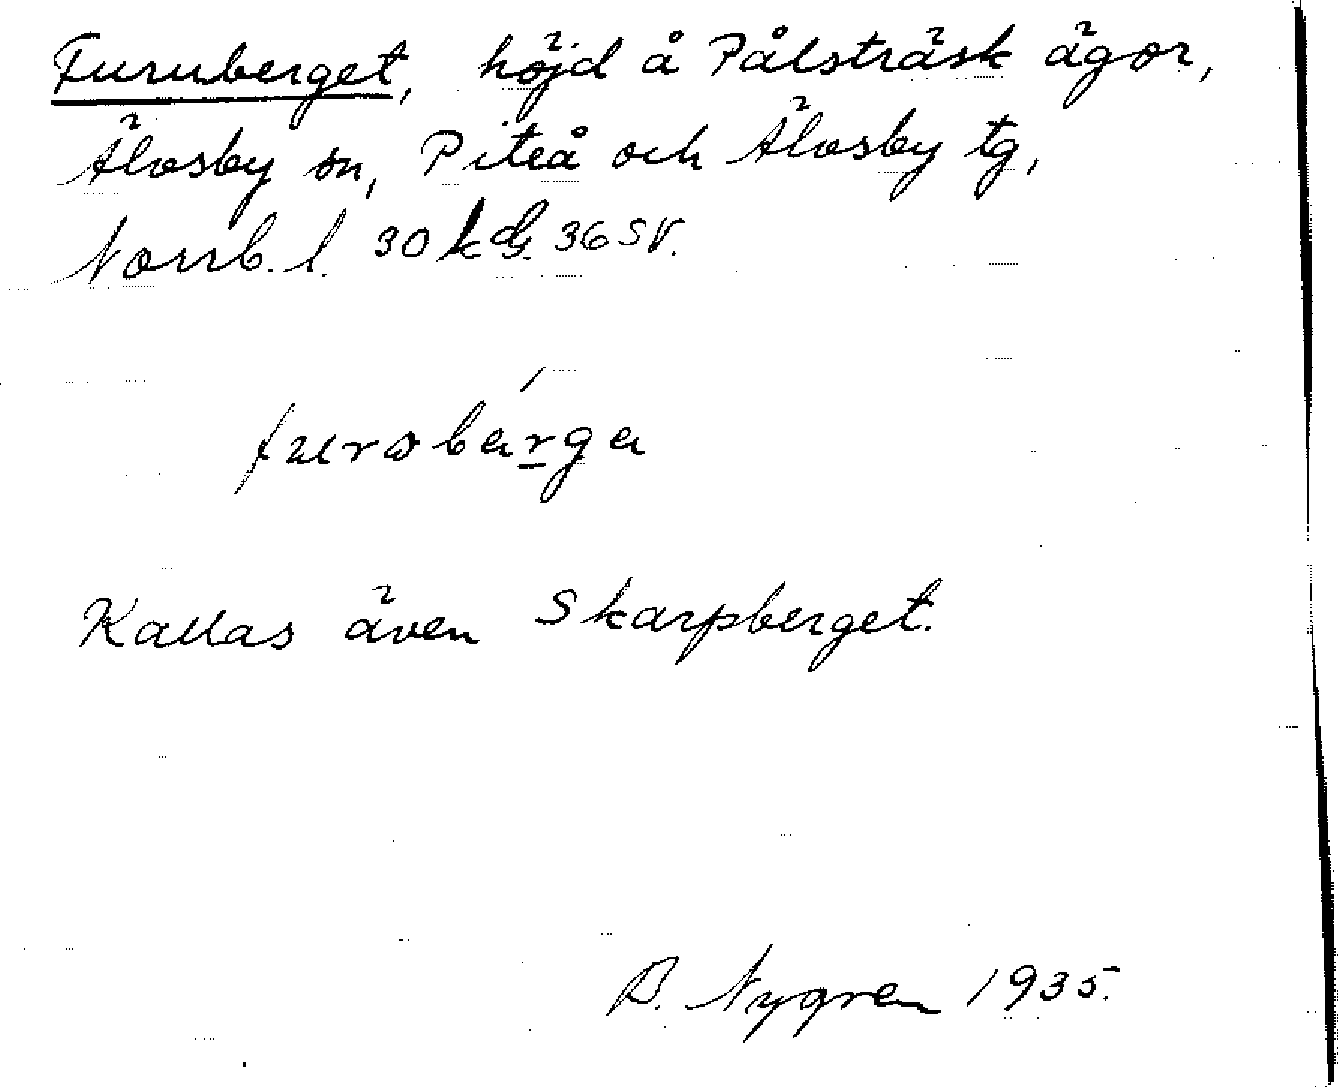 Furuberget, höjd å Pålsträsk ägor,
Älvsby sn, Piteå och Älvsby tg,
Norrb. l. 36 SV.
Kallas även Skarpberget.
B. Nygren 1935.